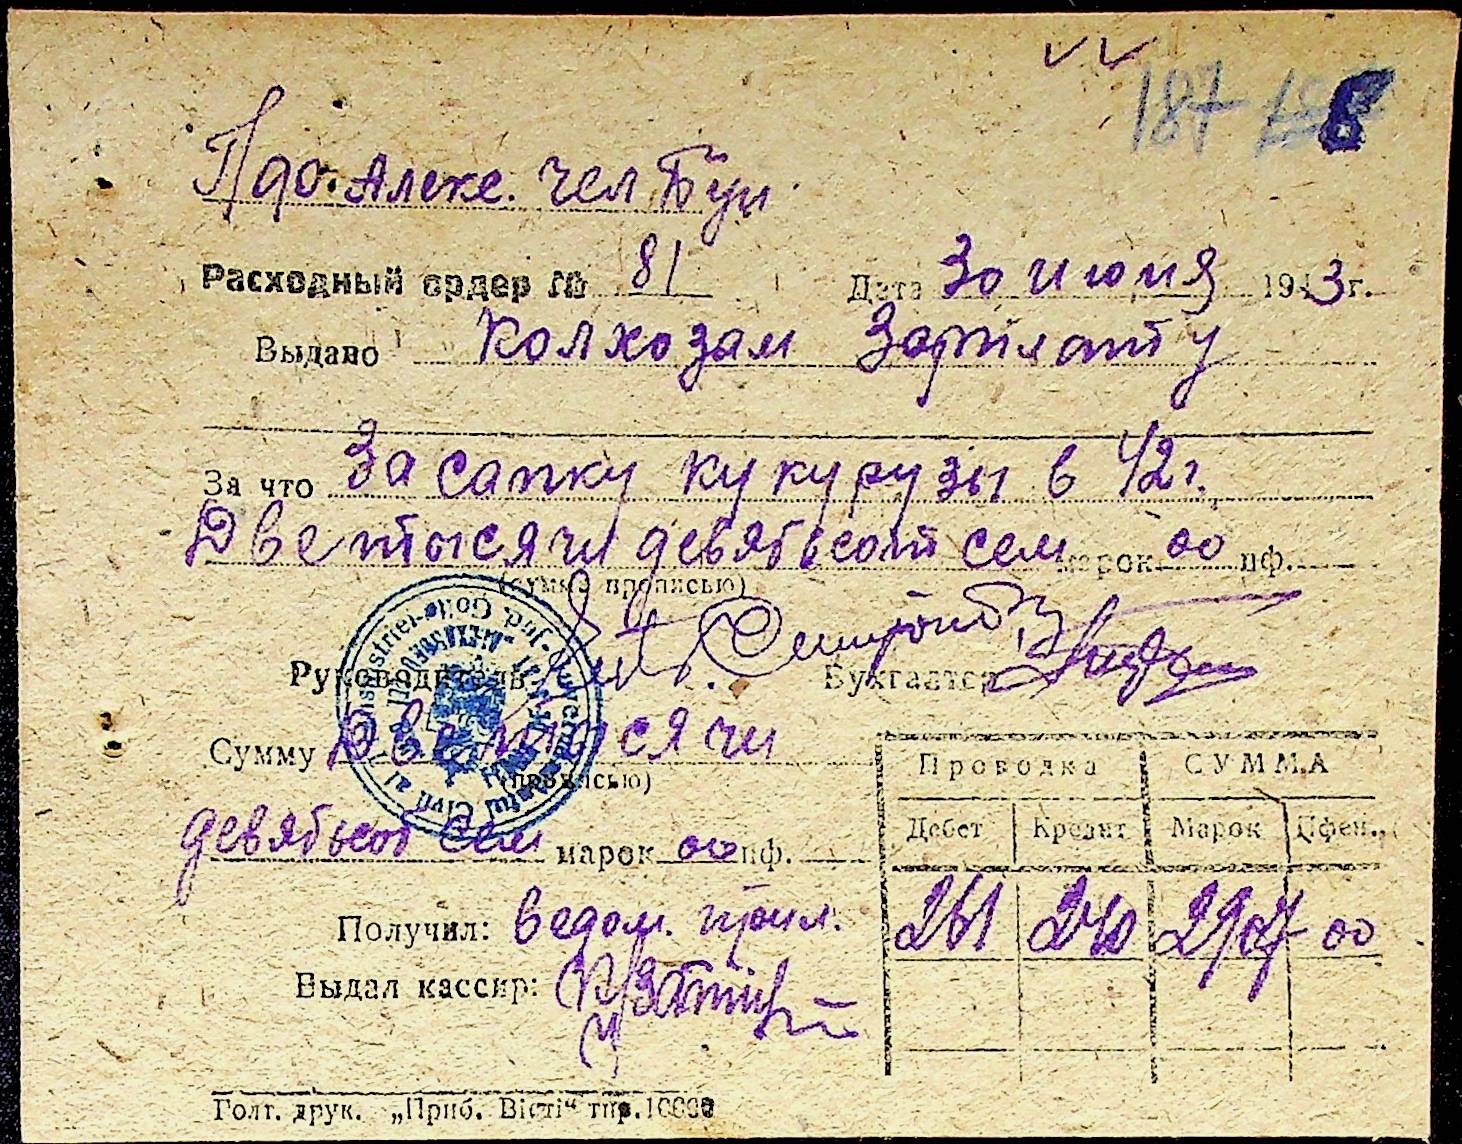 187 8
Алекс. чел Буи
Расходный ордер № 81 Дата 30 июня 1943 г.
Выдано Колхозам Зарплату
За что За сапку кукурузы в 42 г.
Две тысячи девятьсот сем марок 00 пф.
(сумма прописью)
Руководитель Бухгалтер
Сумму Две тысячи
(прописью)
девятьсот сем марок 00 пф.
Проводка СУММА
Дебет Кредит Марок Пфен.
261 240 2907 00
Получил: ведом. прил.
Выдал кассир:
Голт. друк. „Приб. Вісті“ тир. 10000